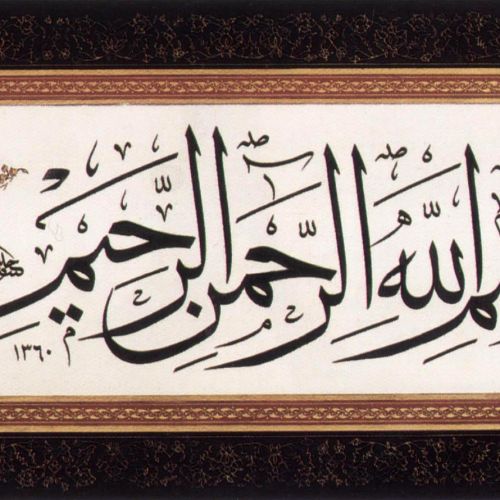 سم الله الرحمن الرحيم
١٣٦٠